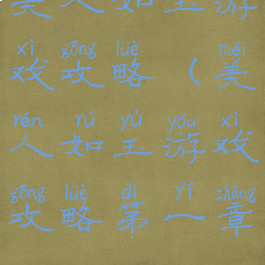 美人如玉游
xì gōng lüè měi
戏攻略（美
rén rú yù yóu xì
人如玉游戏
gōng lüè dì yī zhāng
攻略第一章